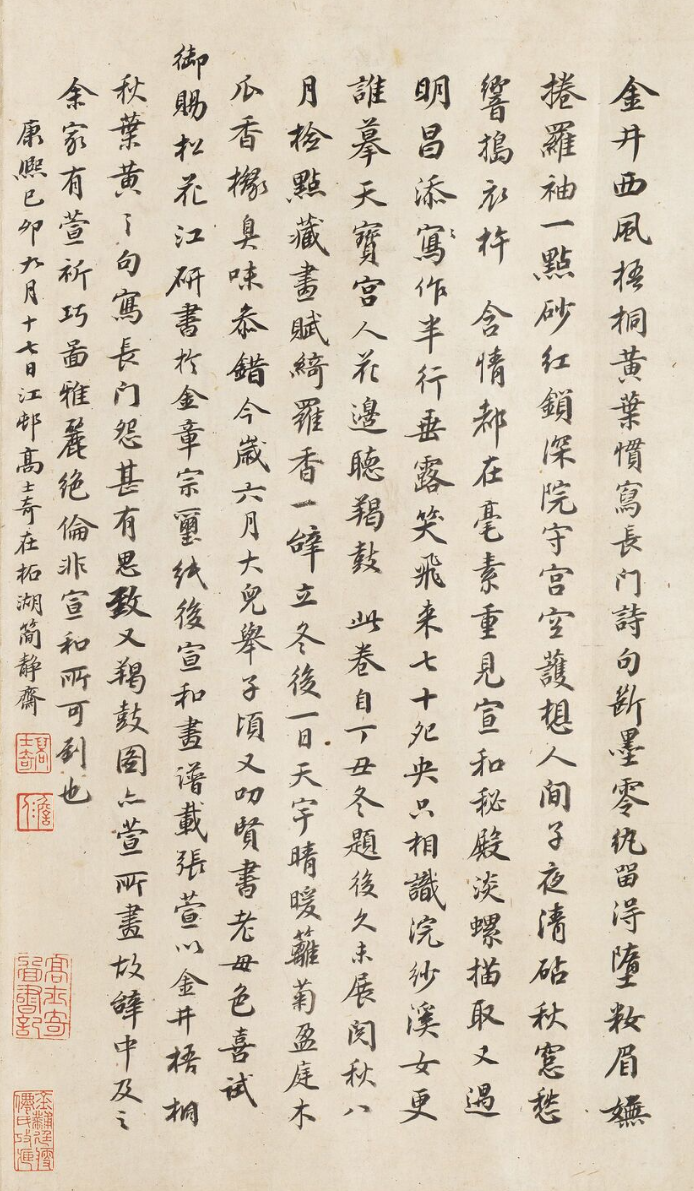 金井西風梧桐黃葉慣寫長门詩句斷墨零紈留得墮粧眉嫵
捲羅袖一點砂紅鎖深院守宮空護想人间子夜清砧秋窓愁
響搗衣杵 含情都在毫素重見宣和秘殿淡螺描取又過
明昌添寫作半行垂露笑飛来七十夗央只相識浣紗溪女更
誰摹天寶宮人花邊聽羯鼓 此卷自丁丑冬題後久未展閱秋八
月檢點藏畫賦綺羅香一辭立冬後一日天宇晴暖蘺菊盈庭木
瓜香櫞臭味叅錯今歲六月大兒舉子頃又叨賢書老母色喜試
御賜松花江研書於金章宗璽紙後宣和畫譜載張萱以金井梧桐
秋葉黃〻句寫長门怨甚有思致又羯鼓圖亦萱所畫故辭中及之
余家有萱祈巧圖雅麗絶倫非宣和所可到也
康熙己卯九月十七日江邨高士奇在柘湖簡静齋
高士奇圖書記